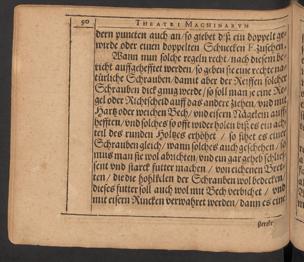 90 THEATRI MACHINARVM
dern puncten auch an / so giebet dß ein doppelt ge-
wirde oder einen doppelten Schnecken F. zusehen.
Wann nun solche regeln recht / nach diesem be-
richt auffgehefftet werden / so geben sie eine rechte na-
türliche Schrauben / damit aber der Reiffen solcher
Schrauben dick gnug werde / so soll man je eine Re-
gel oder Richtscheid auff das ander ziehen / vnd mit
Hartz oder weichen Bech / vnd eisern Näglein auff-
hefften / vnd solches so offt widerholen biß es ein ach-
teil des runden Holtzes erhöhet / so sihet es einer
Schrauben gleich / wann solches auch geschehen / so
mus man sie wol abrichten / vnd ein gar geheb schlies-
sent vnd starck futter machen / von eichenen Bret-
ten / die die hohlkälen der Schrauben wol bedecken /
dieses futter soll auch wol mit Bech verbichet / vnd
mit eisern Rincken verwahret werden / dann es eine